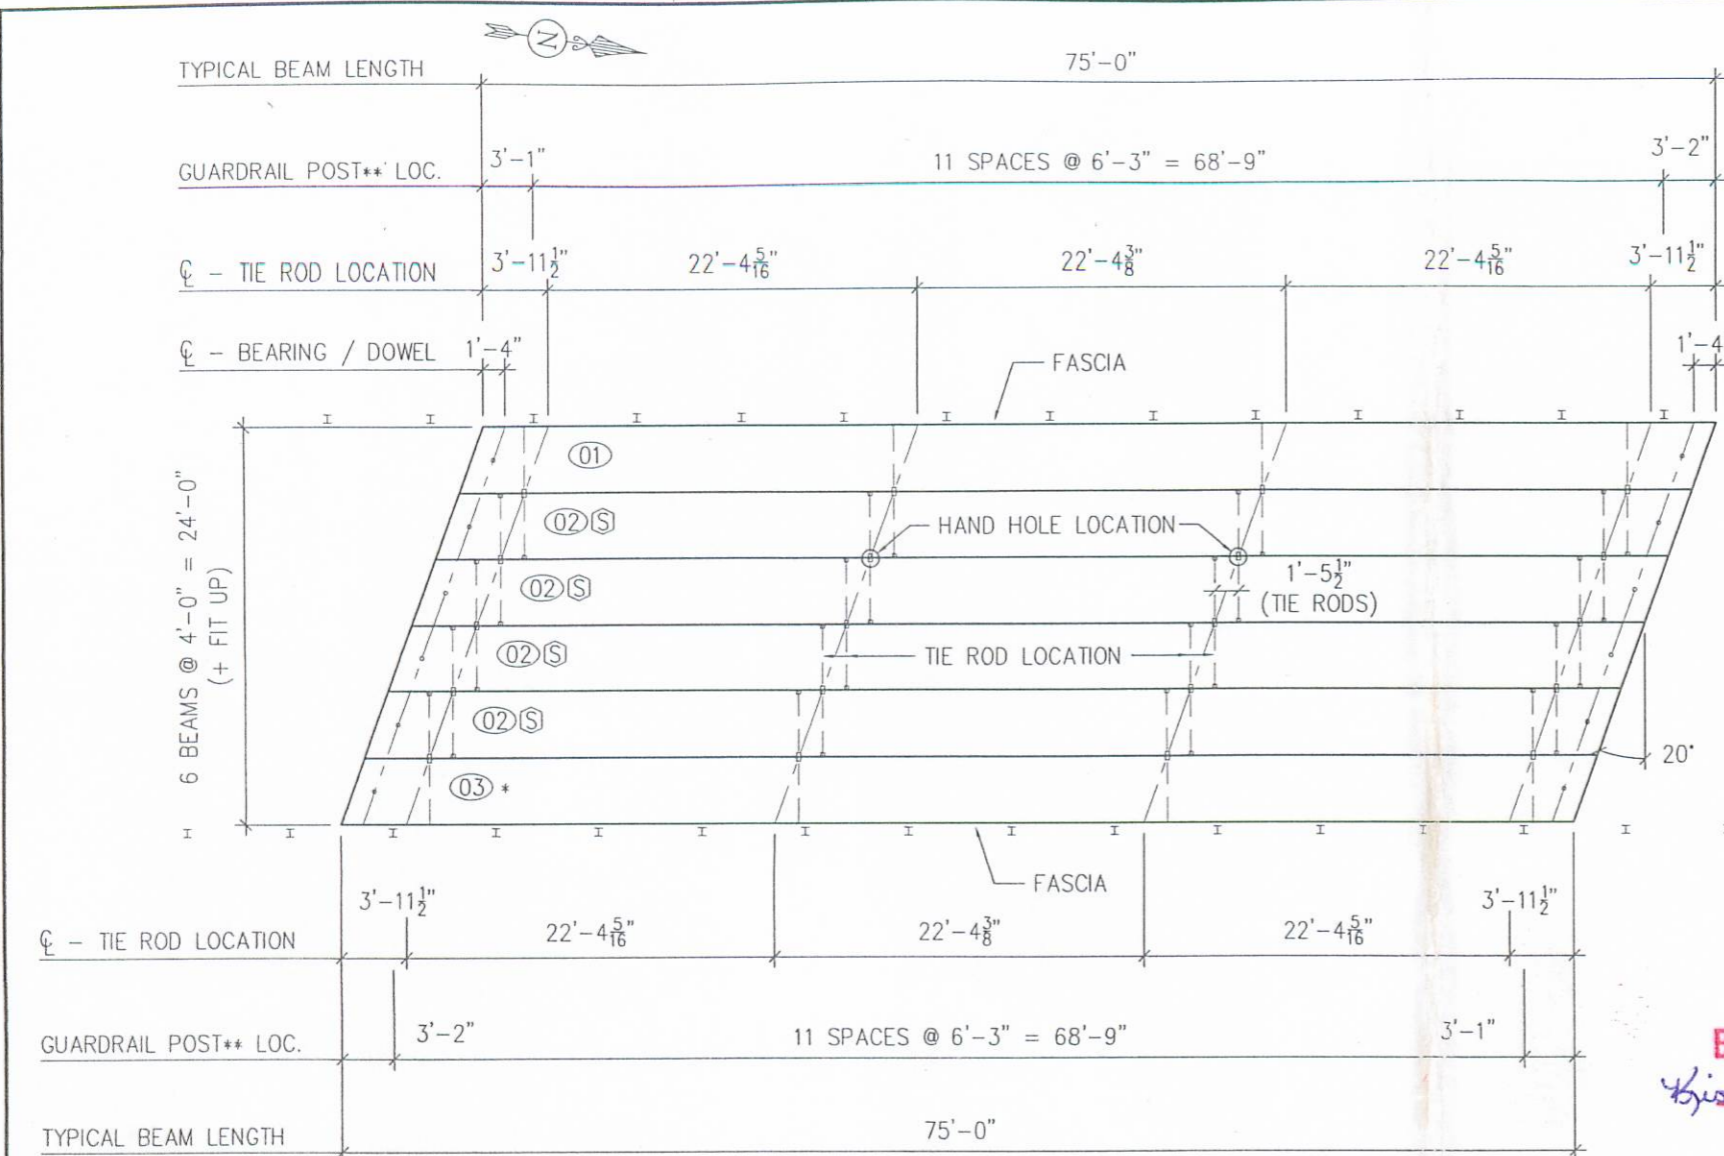 N
TYPICAL BEAM LENGTH 75'-0"
GUARDRAIL POST** LOC. 3'-1" 11 SPACES @ 6'-3" = 68'-9" 3'-2"
℄ - TIE ROD LOCATION 3'-11½" 22'-4 5/16" 22'-4 3/8" 22'-4 5/16" 3'-11½"
℄ - BEARING / DOWEL 1'-4" 1'-4
FASCIA
01
02 S HAND HOLE LOCATION
02 S 1'-5½"
(TIE RODS)
02 S TIE ROD LOCATION
02 S
20°
03 *
6 BEAMS @ 4'-0" = 24'-0"
(+ FIT UP)
FASCIA
℄ - TIE ROD LOCATION 3'-11½" 22'-4 5/16" 22'-4 3/8" 22'-4 5/16" 3'-11½"
GUARDRAIL POST** LOC. 3'-2" 11 SPACES @ 6'-3" = 68'-9" 3'-1"
TYPICAL BEAM LENGTH 75'-0"